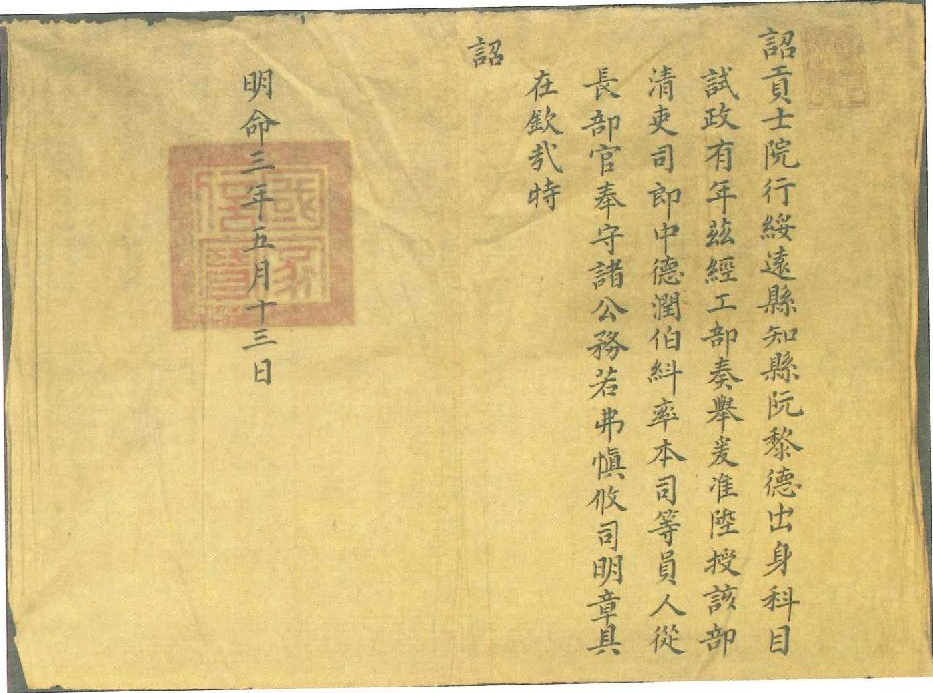 詔貢士院行綏遠縣知縣阮黎德出身科目
試政有年茲經工部奏舉爰准陞授該部
清吏司郎中德潤伯糾率本司等員人從
長部官奉守諸公務若弗慎攸司明章具
在欽哉特
詔
明命三年五月十三日
國家
信寶